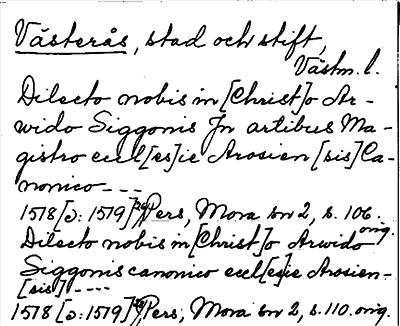 Västerås, stad och stift,
Västm. l.
Dilecto nobis in [Christ]o Ar-
wido Siggonis Jn artibus Ma-
gistro eccl[es]ie Arosien [sis] Ca-
nonico ---
1578 [ɔ: 1579] Pers, Mora sn 2, s. 106.
orig.
Dilecto nobis in [Christ]o Arwido
Siggonis canonico eccl[es]ie Arosien-
[sis] ----
1578 [ɔ: 1579] Pers, Mora sn 2, s. 110. orig.